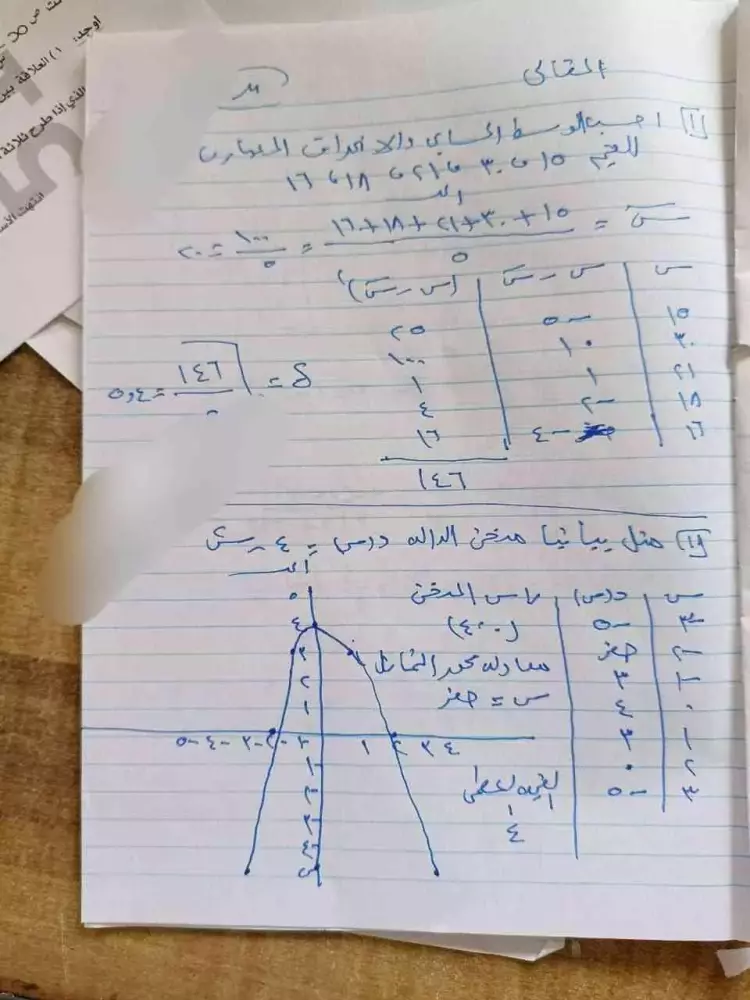 المقالى
[١] احسب الوسط الحسابى والانحراف المعيارى
للقيم ١٥ ، ٣٠ ، ٢١ ، ١٨ ، ١٦
الحل
س̄ = (١٥ + ٣٠ + ٢١ + ١٨ + ١٦) / ٥ = ١٠٠ / ٥ = ٢٠
س | س - س̄ | (س - س̄)²
١٥ | -٥ | ٢٥
٣٠ | ١٠ | ١٠٠
٢١ | ١ | ١
١٨ | -٢ | ٤
١٦ | -٤ | ١٦
١٤٦
δ = √(١٤٦ / ٥) = ٥,٤
[٢] مثل بيانيا منحنى الداله د(س) = ٤ - س²
الحل
س | د(س) | راس المنحنى
-٣ | -٥ | (٠،٤)
-٢ | صفر | معادله محور التماثل
-١ | ٣ | س = صفر
٠ | ٤
١ | ٣
٢ | ٠ | القيمه العظمى
٣ | -٥ | ٤
٥
٤
٣
٢
١
-٥ -٤ -٣ -٢ -١ ١ ٢ ٣ ٤
-١
-٢
-٣
-٤
-٥
اوجد: ١) العلاقة بين
الذي إذا طرح ثلاثة